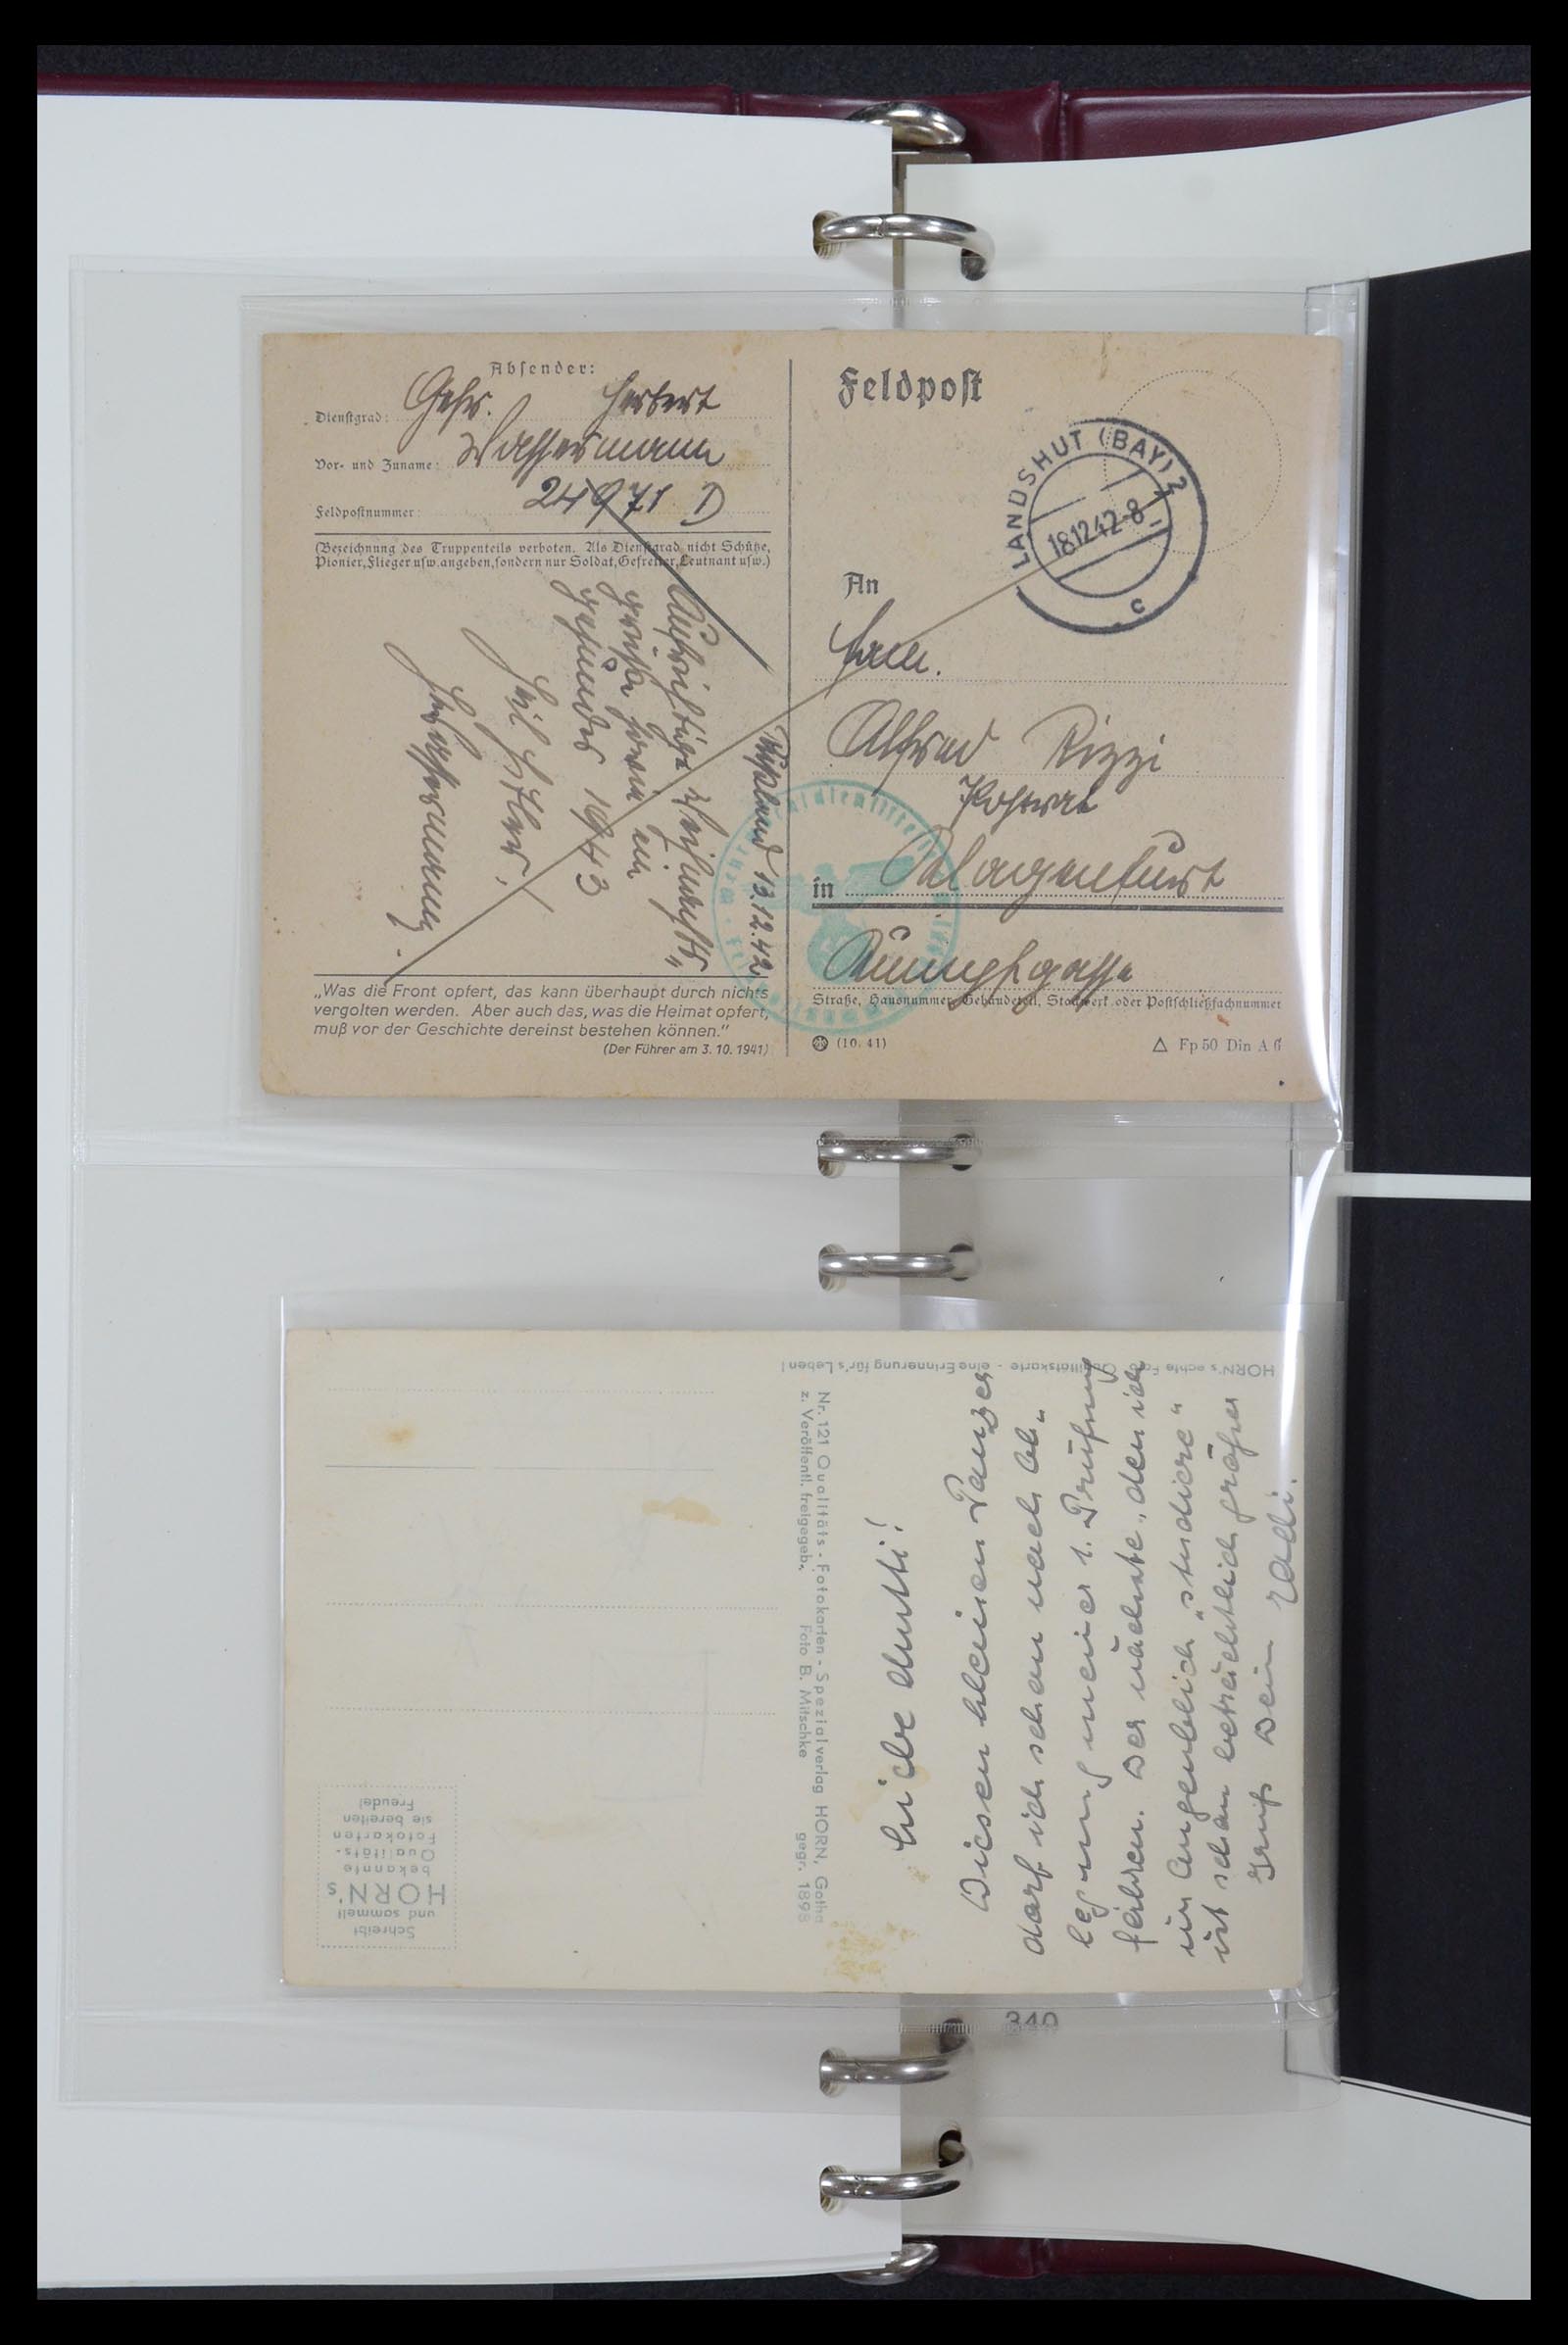 Absender:
Dienstgrad: Gefr. Herbert
Vor- und Zuname: Wassermann
Feldpostnummer: 24971 D
(Bezeichnung des Truppenteils verboten. Als Dienstgrad nicht Schütze,
Pionier, Flieger usw. angeben, sondern nur Soldat, Gefreiter, Leutnant usw.)
Rußland 13.12.42
Aufrichtige Weihnachts„
grüße sowie ein
gesundes 1943
Heil Hitler!
„Was die Front opfert, das kann überhaupt durch nichts
vergolten werden. Aber auch das, was die Heimat opfert,
muß vor der Geschichte dereinst bestehen können.“
(Der Führer am 3. 10. 1941)
Feldpost
LANDSHUT (BAY) 2
18.12.42-8
c
An
Fam.
Alfred Rizzi
Postrat
in Klagenfurt
Straße, Hausnummer, Gebäudeteil, Stockwerk oder Postschließfachnummer
(10. 41)
Fp 50 Din A 6
HORN's echte Qualitätskarte - eine Erinnerung für's Leben!
Nr. 121 Qualitäts-Fotokarten-Spezialverlag HORN, Gotha
z. Veröffentl. freigegeb. Foto B. Mitschke gegr. 1898
Schreibt
und sammelt
HORN's
bekannte
Qualitäts-
Fotokarten
sie bereiten
Freude!
Liebe Mutti!
Diesen kleinen Panzer
darf ich schon nach Ab„
legung meiner 1. Prüfung
fahren. Der nächste, den ich
im Augenblick „studiere“
ist schon beträchtlich größer
Gruß Dein Radi.
340